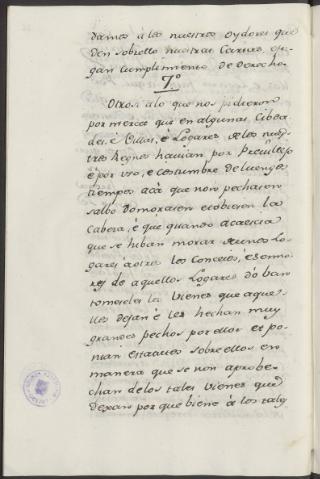 damos à los nuestros oydores que
den sobrello nuestras Cartas, e fa-
gan cumplimiento de derecho.
7º
Otrosi à lo que nos pidieron
por merced que en algunas Cibda-
des, è Villas, è Logares de los nuestros
regnos havian por Previllexo
è por uso, e costumbre de luengos
tiempos acà que non pechasen
salbo do morasen e obiesen la
Cabeza, è que quando acaescia
que se hiban morar de unos Lo-
gares à otros los Concejos, è Seño-
res de aquellos Logares do ban
tomarles los vienes que aque-
llos dejan è les hechan muy
grandes pechos por ellos et po-
nian estatutos sobre ellos en
manera que se non aprobe-
chan de los tales vienes que
dexan por que biene à los tales